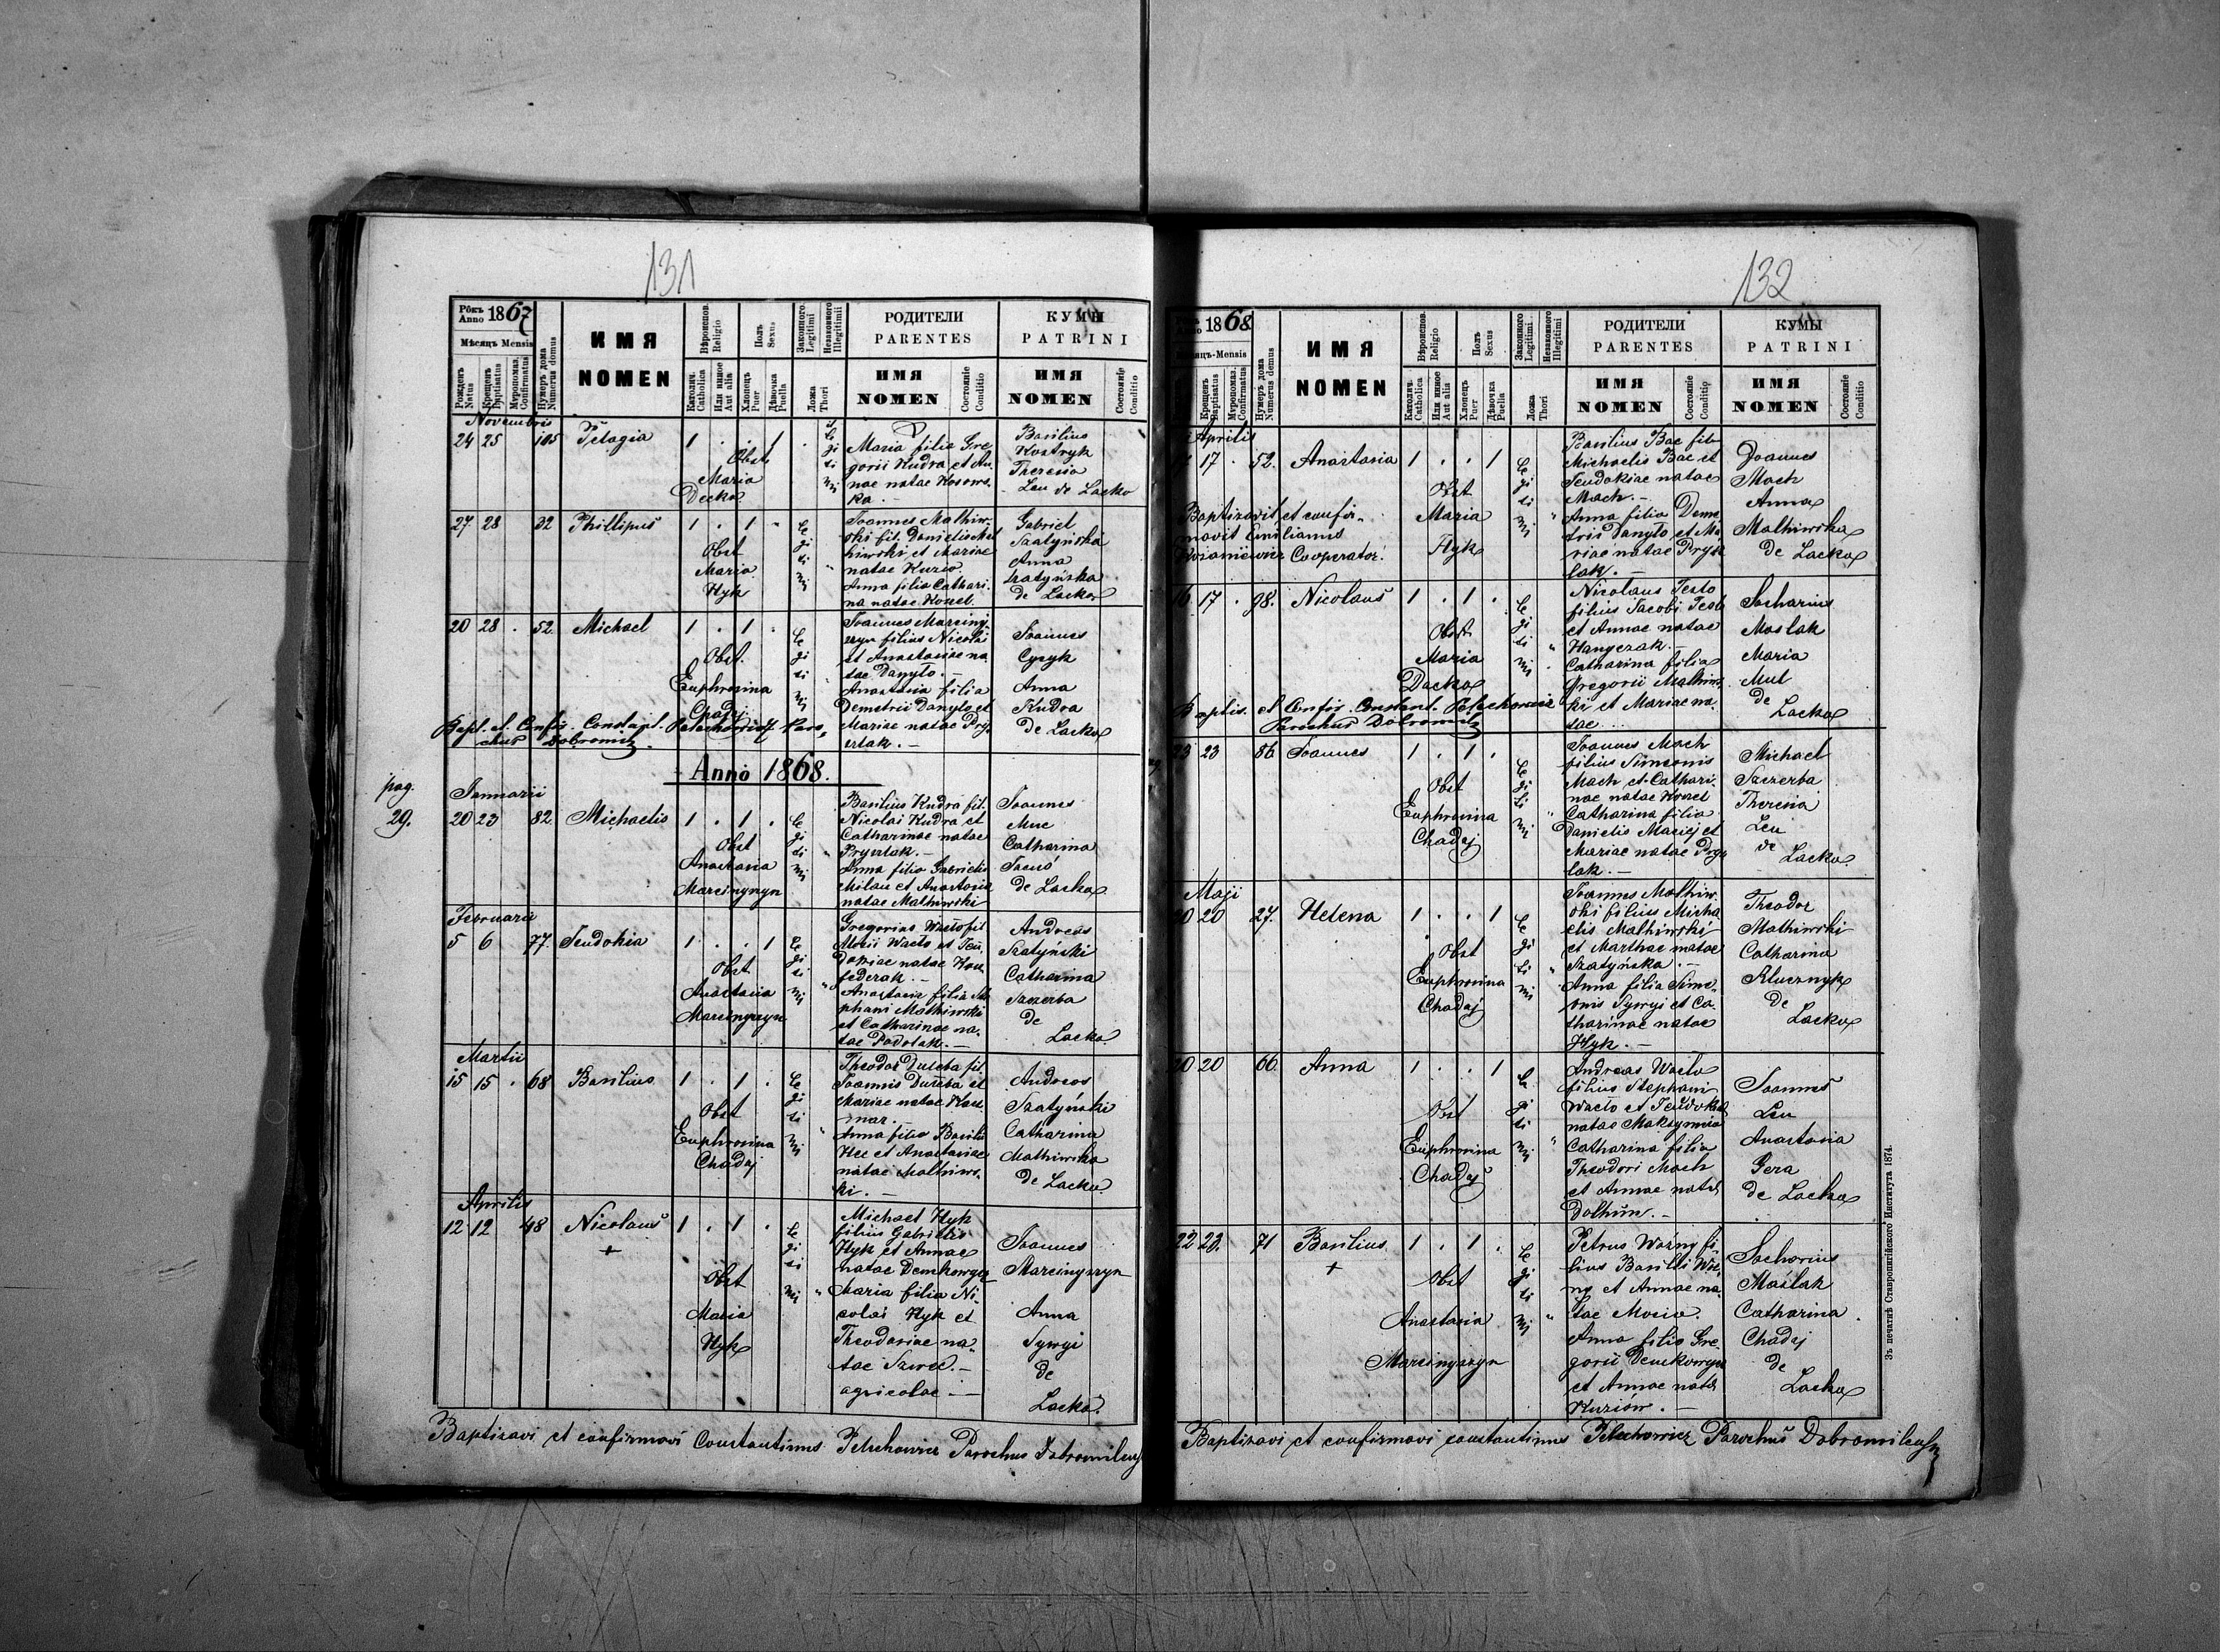 131
Рôкъ
Anno 1867
Мѣсяць Mensis
Рожденъ
Natus
Крещенъ
Baptisatus
Мѵропомаз.
Confirmatus
Нумеръ дома
Numerus domus
ИМЯ
NOMEN
Вѣроиспов.
Religio
Католич.
Catholica
Или инное
Aut alia
Полъ
Sexus
Хлопецъ
Puer
Дѣвочка
Puella
Законного
Legitimi
Незаконного
Illegitimii
Ложа
Thori
РОДИТЕЛИ
PARENTES
ИМЯ
NOMEN
Состоянiе
Conditio
КУМЫ
PATRINI
ИМЯ
NOMEN
Состоянiе
Conditio
Novembris
24 25 105 Pelagia 1 . . 1 .
Obst.
Maria
Dacka
Maria filia Gre
gorii Kudra et An
nae natae Kosows
ka. —
Basilius
Kostryk
Theresia
Leu de Lacko
27 28 32 Phillipus 1 . 1 .
Obst
Maria
Hyk
le
gi
ti
mi
Joannes Malhiw-
ski fil. Danielis Mal
hiwski et Mariae
natae Kuzio.
Anna filia Cathari-
na natae Kossel.
Gabriel
Szatyński
Anna
Szatyńska
de Lacko
20 28 . 52 Michael 1 . 1 .
Obst.
Euphrosina
Chadzj
le
gi
ti
mi
Joannes Marciny-
szyn filius Nicolai
et Anastasiae na
tae Danyło. —
Anastasia filia
Demetrii Danyło et
Mariae natae Pry
szlak. —
Joannes
Cyzyk
Anna
Kudra
de Lacko
Bapt. et Confir. Constant. Petachowicz Paro,
chus Dobromil.
Anno 1868.
pag.
29.
Januarii
20 23 82 Michaelis 1 . 1 .
Obst
Anastasia
Marcinyszyn
le
gi
ti
mi
Basilius Kudra fil.
Nicolai Kudra et
Catharinae natae
Pryszlak. —
Anna filia Gabrielis
Milan et Anastasia
natae Malhiwski
Joannes
Muc
Catharina
de Lacko
Februarii
5 6 77. Teudokia 1 . . 1
Obst
Anastasia
Marcinyszyn
le
gi
ti
mi
Gregorius Wacło fil
Alexii Wacło et Teu,
dokiae natae Kon
federak. —
Anastasia filia Ste
phani Malhiwski
et Catharinae na,
tae Podolak. —
Andreas
Szatyński
Catharina
Szczerba
de
Lacko
Martii
15 15 . 68 Basilius 1 . 1 .
Obst
Euphrosina
Chadzj
le
gi
ti
mi
Theodor Duleba fil.
Joannis Duleba et
Mariae natae Kacz
mar. —
Anna filia Basilii
Hec et Anastasiae
natae Malhiws,
ki. —
Andreas
Szatyński
Catharina
Malhiwska
de Lacko.
Aprilis
12 12 48 Nicolaus 1 . 1 .
+
Obst
Maria
Hyk
le
gi
ti
mi
Michael Hyk
filius Gabrielis
Hyk et Annae
natae Demkowycz
Maria filia Ni,
colai Hyk et
Theodoriae na,
tae Szwec. —
agricolae. —
Joannes
Marcinyszyn
Anna
Sywyi
de
Lacko.
Baptisavi et confirmavi Constantinus Petachowicz Parochus Dobromilensis
132
Anno 1868
Мѣсяцъ-Mensis
Крещенъ
Baptisatus
Мѵропомаз.
Confirmatus
Нумеръ дома
Numerus domus
ИМЯ
NOMEN
Вѣроиспов.
Religio
Католич.
Catholica
Или инное
Aut alia
Полъ
Sexus
Хлопецъ
Puer
Дѣвочка
Puella
Законного
Legitimi
Незаконного
Illegitimi
Ложа
Thori
РОДИТЕЛИ
PARENTES
ИМЯ
NOMEN
Состоянiе
Conditio
КУМЫ
PATRINI
ИМЯ
NOMEN
Состоянiе
Conditio
Aprilis
17 . 52. Anastasia 1 . . 1
Obst
Maria
Hyk
le
gi
ti
mi
Basilius Bac fil
Michaelis Bac et
Teudokiae natae
Mach. —
Anna filia Deme
trii Danyło et Ma
riae natae Prysz
lak. —
Joannes
Mach
Anna
Malhiwska
de Lacko
Baptizavit et confir,
mavit Emilianus
Cooperator.
16 17 . 98. Nicolaus 1 . 1 .
Obst
Maria
Dacka
le
gi
ti
mi
Nicolaus Testo
filius Jacobi Testo
et Annae natae
Hanyczak. —
Catharina filia
Gregorii Malhiws,
ki et Mariae na,
tae ...
Sacharius
Maslak
Maria
Mul
de
Lacko
Baptis. et Confir. Constant. Petachowicz
Parochus Dobromil.
23 23 86 Joannes 1 . 1 .
Obst
Euphrosina
Chadzj
le
gi
ti
mi
Joannes Mach
filius Simeonis
Mach et Cathari,
nae natae Kossel
Catharina filia
Danielis Maciej et
Mariae natae Prysz
lak. —
Michael
Szczerba
Theresia
Leu
de
Lacko.
Maji
20 20 27. Helena 1 . . 1
Obst
Euphrosina
Chadzj
le
gi
ti
mi
Joannes Malhiw,
ski filius Micha
elis Malhiwski
et Marthae natae
Szatyńska. —
Anna filia Sime,
onis Sywyi et Ca,
tharinae natae
Hyk. —
Theodor
Malhiwski
Catharina
Klucznyk
de
Lacko
20 20 66. Anna 1 . . 1
Obst
Euphrosina
Chadzj
le
gi
ti
mi
Andreas Wacło
filius Stephani
Wacło et Teudokiae
natae Maksymiw
Catharina filia
Theodori Mach
et Annae natae
Dolhun. —
Joannes
Leu
Anastasia
Gera
de Lacko
22 23. 71 Basilius 1 . 1 .
+
Obst
Anastasia
Marcinyszyn
le
gi
ti
mi
Petrus Woźny fi,
lius Basilii Woź,
ny et Annae na,
tae Mocio.
Anna filia Gre,
gorii Demkowycz
et Annae natae
Kuziów. —
Sacharius
Maślak
Catharina
Chadzj
de
Lacko
Baptizavi et confirmavi constantinus Petachowicz Parochus Dobromilensis
Зъ печатнѣ Ставропигійского Института 1874.